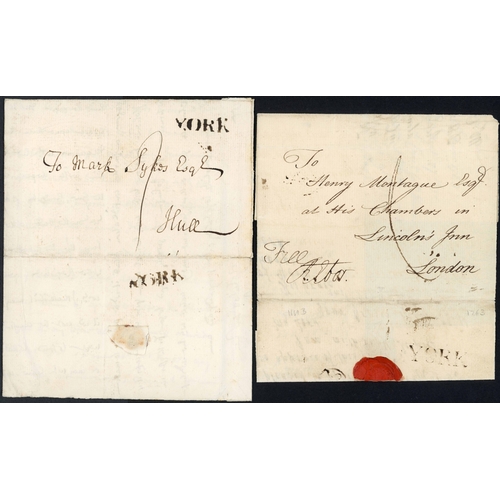 YORK
To Mark Sykes Esqr
Hull
YORK
To
Henry Montague Esqr
at His Chambers in
Lincoln's Inn
London
Free
YORK